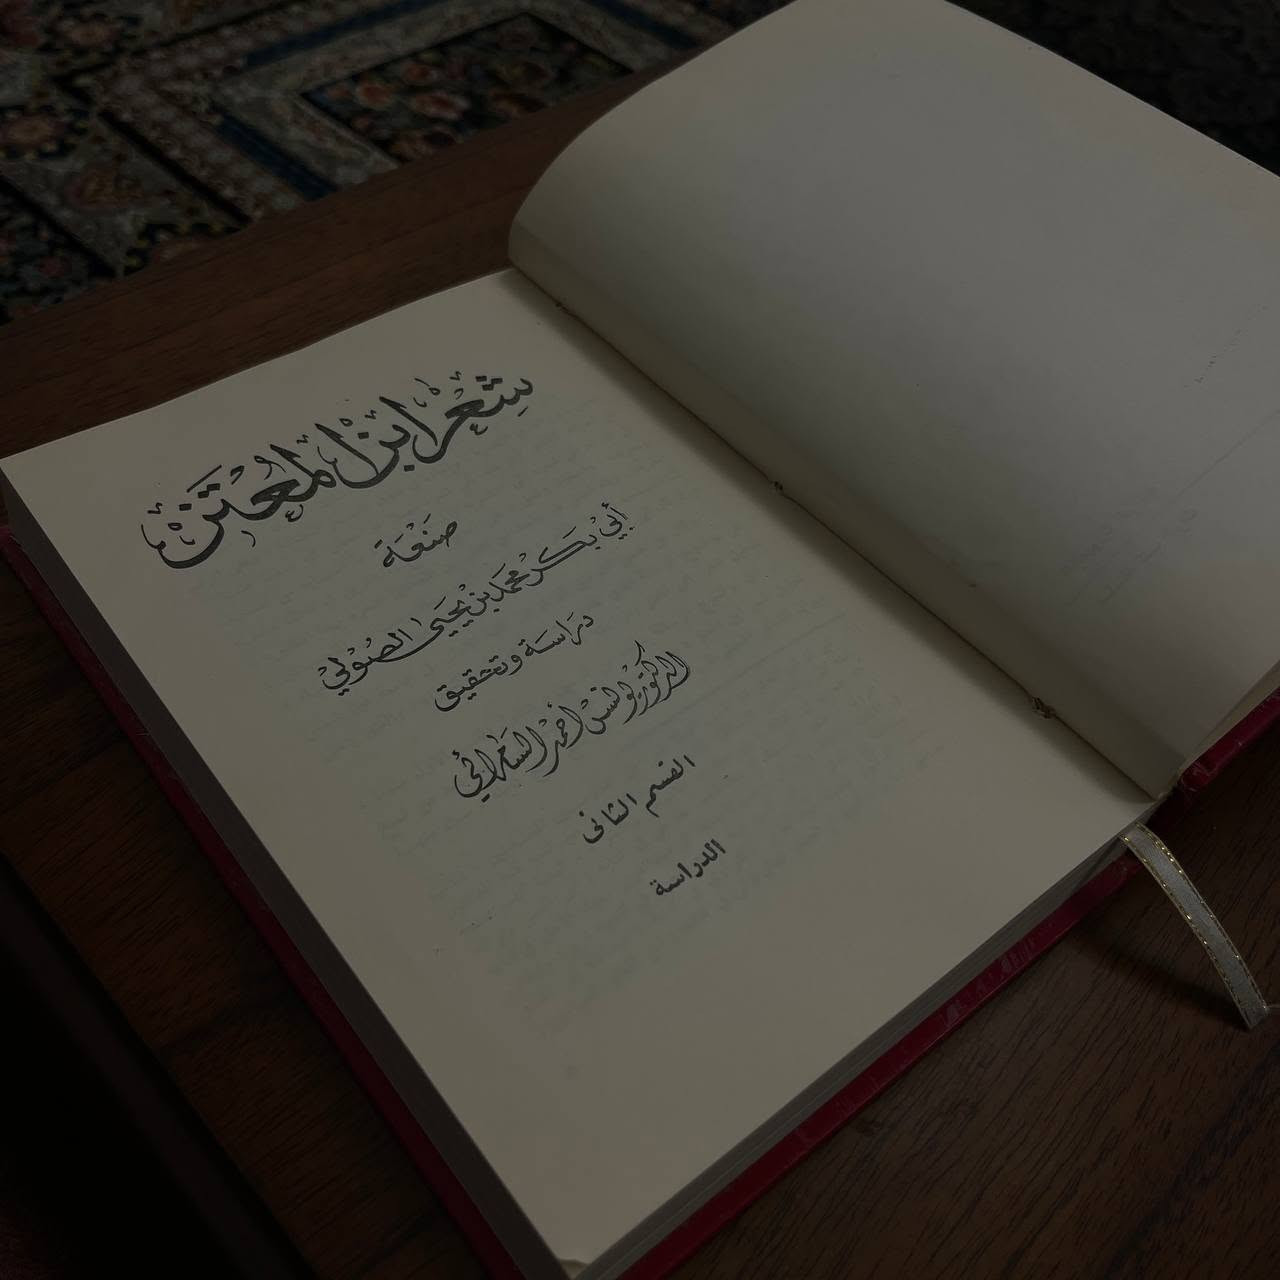 شِعْرُ ابْنِ الْمُعْتَز
صَنْعَة
أبي بَكر محمد بن يحيى الصُولي
دراسَة وتحقيق
الدكتور يونس أحمد السامرائي
القسم الثانى
الدراسة